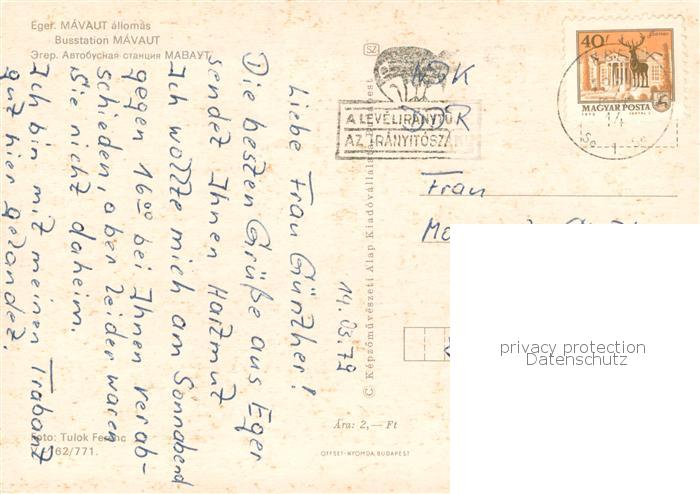 Eger. MÁVAUT állomás
Busstation MÁVAUT
Эгер. Автобусная станция МАВАУТ
Liebe Frau Günther!
Die besten Grüße aus Eger
sendet Ihnen Hartmut
Ich wollte mich am Sonnabend
gegen 16⁰⁰ bei Ihnen verab-
schieden, aber leider waren
Sie nicht daheim.
Ich bin mit meinen Trabant
gut hier gelandet.
14.03.79
Foto: Tulok Ferenc
162/771.
SZ
© Képzőművészeti Alap Kiadóvállalata
Ára: 2,— Ft
OFFSET-NYOMDA, BUDAPEST
A LEVÉLIRÁNYTŰ
AZ IRÁNYÍTÓSZÁM
NDK
DDR
40f
MAGYAR POSTA
14
Frau
privacy protection
Datenschutz